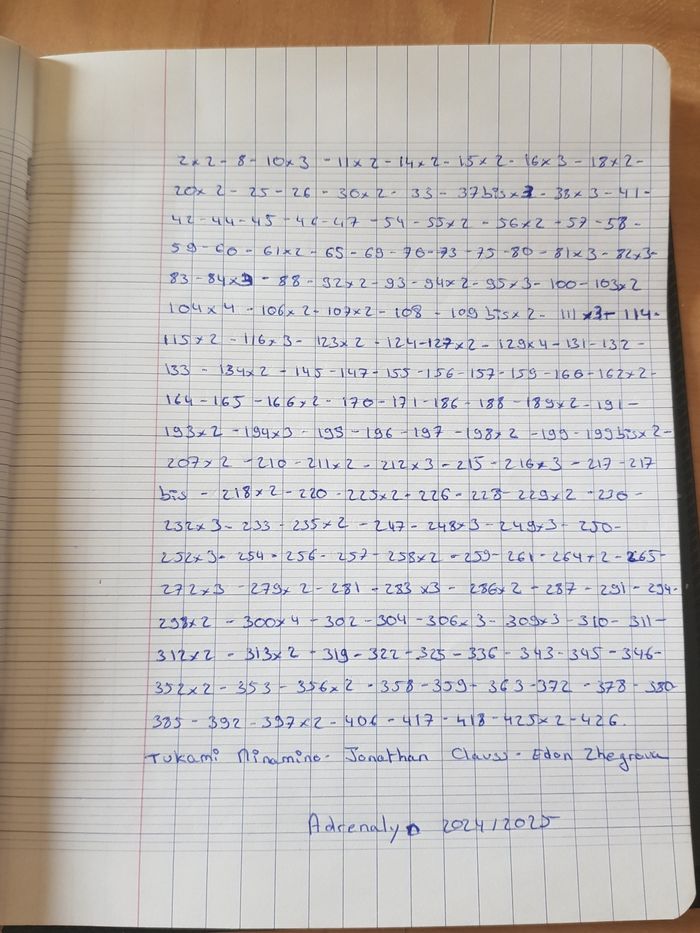 2x2 - 8 - 10x3 - 11x2 - 14x2 - 15x2 - 16x3 - 18x2 -
20x2 - 25 - 26 - 30x2 - 33 - 37bisx3 - 38x3 - 41 -
42 - 44 - 45 - 46 - 47 - 54 - 55x2 - 56x2 - 57 - 58 -
59 - 60 - 61x2 - 65 - 69 - 70 - 73 - 75 - 80 - 81x3 - 82x3 -
83 - 84x3 - 88 - 92x2 - 93 - 94x2 - 95x3 - 100 - 103x2
104x4 - 106x2 - 107x2 - 108 - 109 bis x2 - 111x3 - 114 -
115x2 - 116x3 - 123x2 - 124 - 127x2 - 129x4 - 131 - 132 -
133 - 134x2 - 145 - 147 - 155 - 156 - 157 - 159 - 160 - 162x2 -
164 - 165 - 166x2 - 170 - 171 - 186 - 188 - 189x2 - 191 -
193x2 - 194x3 - 195 - 196 - 197 - 198x2 - 199 - 199bisx2 -
207x2 - 210 - 211x2 - 212x3 - 215 - 216x3 - 217 - 217
bis - 218x2 - 220 - 225x2 - 226 - 228 - 229x2 - 230 -
232x3 - 233 - 235x2 - 247 - 248x3 - 249x3 - 250 -
252x3 - 254 - 256 - 257 - 258x2 - 259 - 261 - 264x2 - 265 -
272x3 - 279x2 - 281 - 283x3 - 286x2 - 287 - 291 - 294 -
298x2 - 300x4 - 302 - 304 - 306x3 - 309x3 - 310 - 311 -
312x2 - 313x2 - 319 - 322 - 325 - 336 - 343 - 345 - 346 -
352x2 - 353 - 356x2 - 358 - 359 - 363 - 372 - 378 - 380
385 - 392 - 397x2 - 406 - 417 - 418 - 425x2 - 426.
Tukami Minamino - Jonathan Clauss - Edon Zhegrova
Adrenalyn 2024/2025